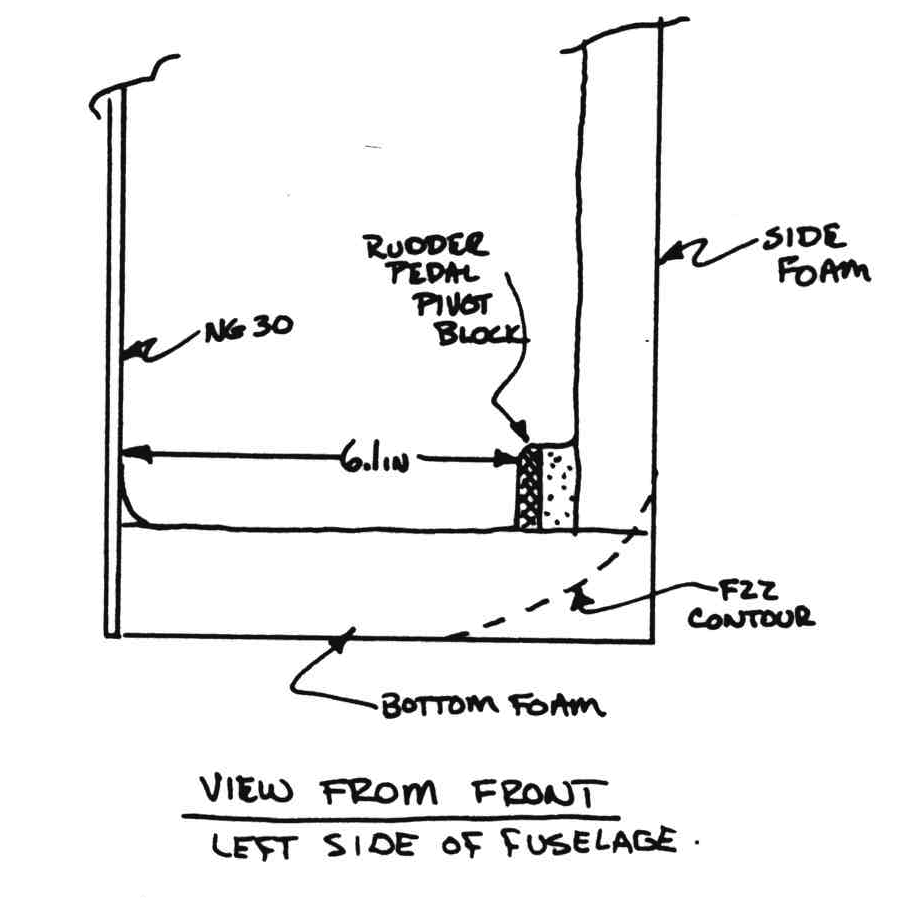 RUDDER
PEDAL
PIVOT
BLOCK
SIDE
FOAM
NG 30
6.1 IN
F22
CONTOUR
BOTTOM FOAM
VIEW FROM FRONT
LEFT SIDE OF FUSELAGE.